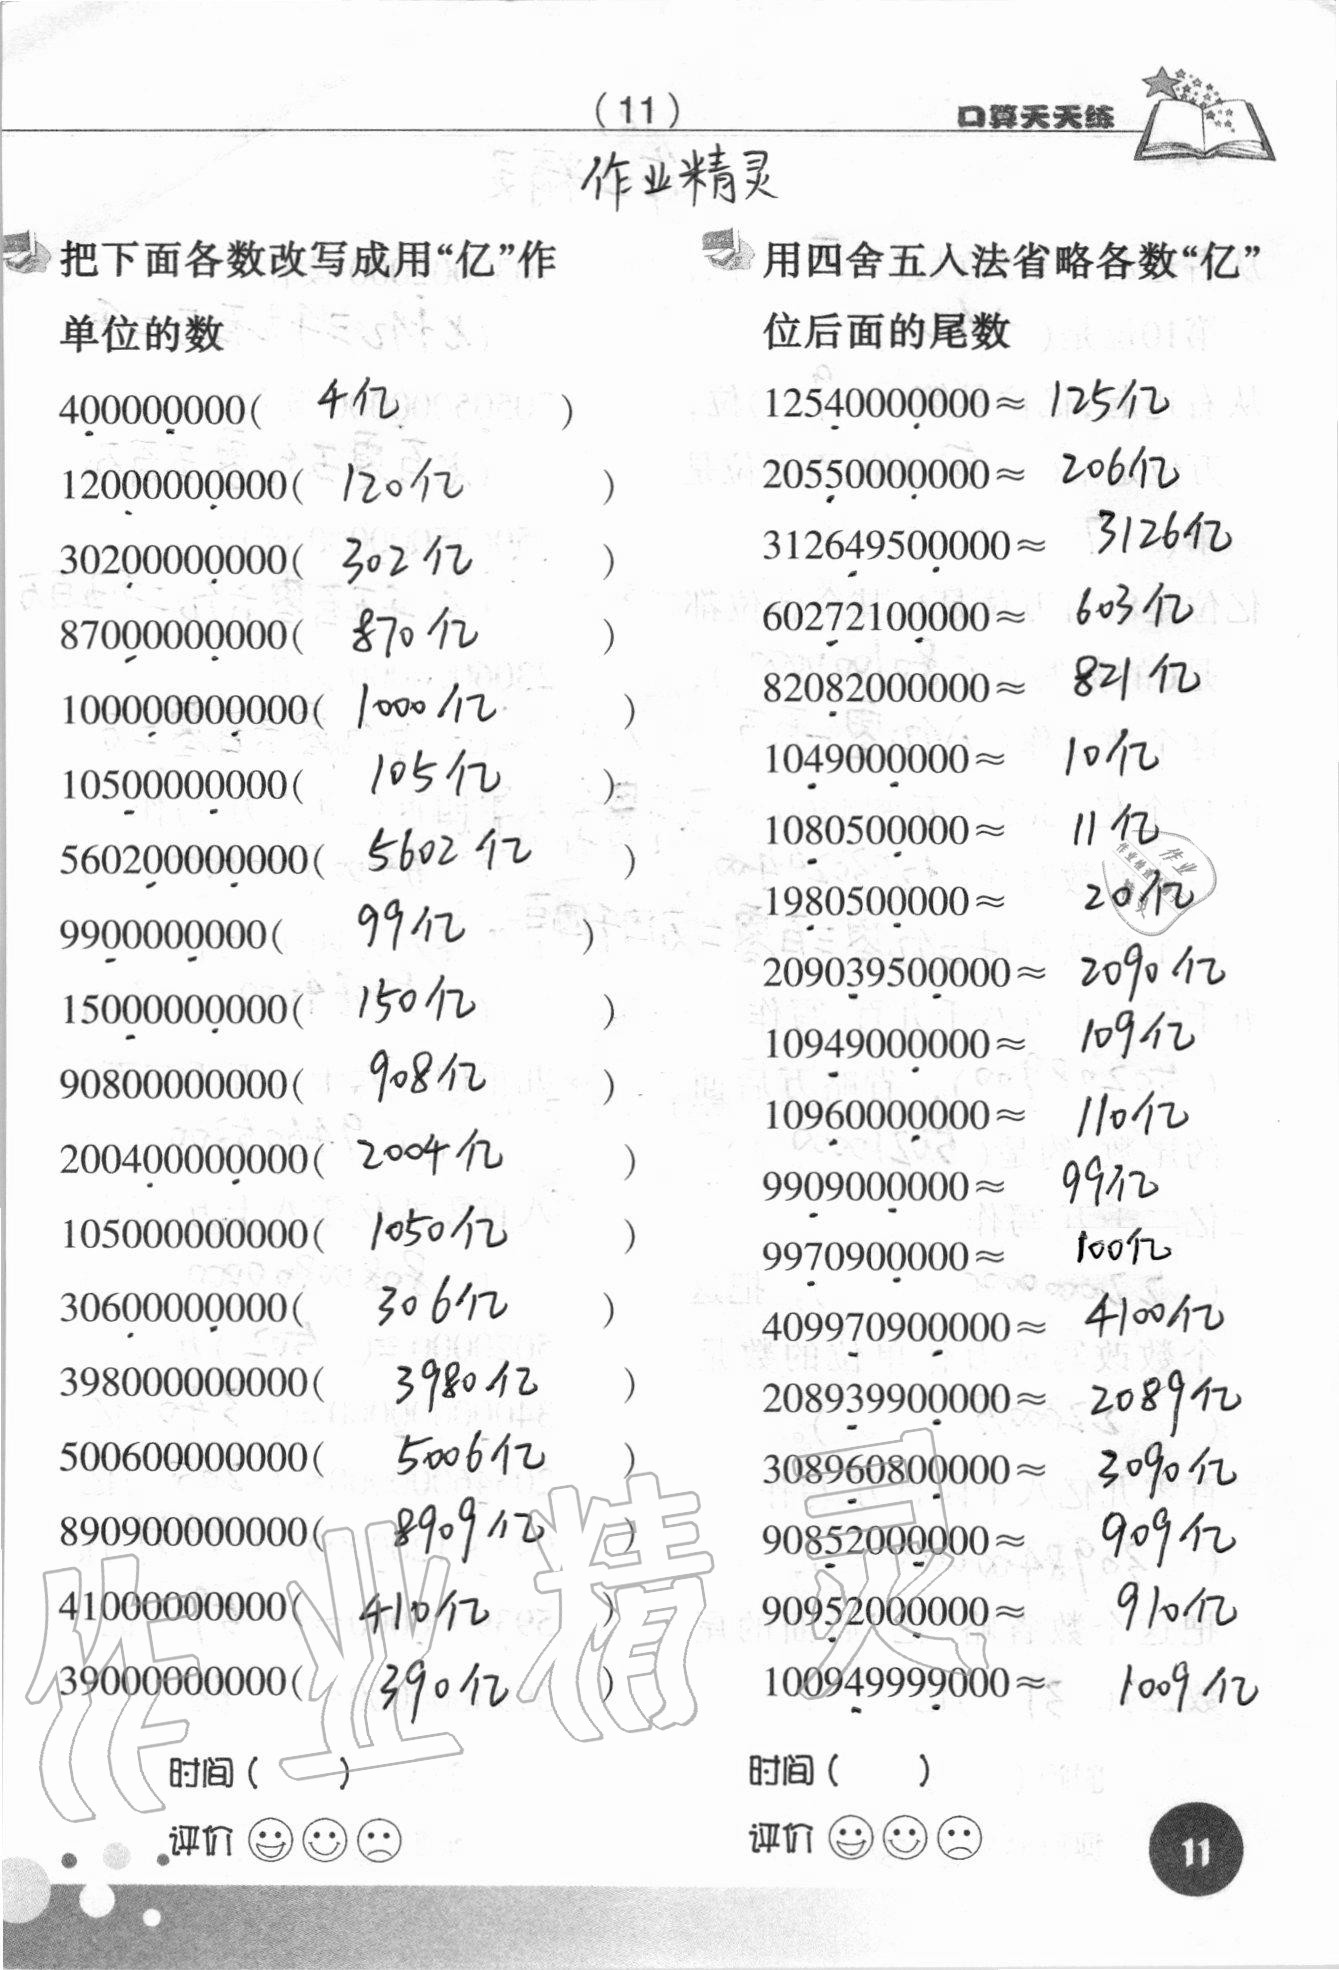 (11)
口算天天练
作业精灵
把下面各数改写成用“亿”作
单位的数
400000000( 4亿 )
12000000000( 120亿 )
30200000000( 302亿 )
87000000000( 870亿 )
100000000000( 1000亿 )
10500000000( 105亿 )
560200000000( 5602亿 )
9900000000( 99亿 )
15000000000( 150亿 )
90800000000( 908亿 )
200400000000( 2004亿 )
105000000000( 1050亿 )
30600000000( 306亿 )
398000000000( 3980亿 )
500600000000( 5006亿 )
890900000000( 8909亿 )
41000000000( 410亿 )
39000000000( 390亿 )
时间( )
评价
用四舍五入法省略各数“亿”
位后面的尾数
12540000000≈ 125亿
20550000000≈ 206亿
312649500000≈ 3126亿
60272100000≈ 603亿
82082000000≈ 821亿
1049000000≈ 10亿
1080500000≈ 11亿
1980500000≈ 20亿
209039500000≈ 2090亿
10949000000≈ 109亿
10960000000≈ 110亿
9909000000≈ 99亿
9970900000≈ 100亿
409970900000≈ 4100亿
208939900000≈ 2089亿
308960800000≈ 3090亿
90852000000≈ 909亿
90952000000≈ 910亿
100949999000≈ 1009亿
时间( )
评价
11
作业精灵